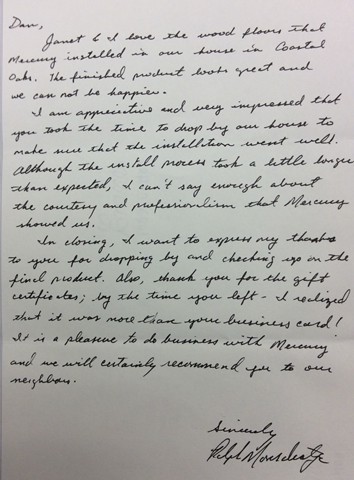 Dan,
Janet & I love the wood floors that
Mercury installed in our house in Coastal
Oaks. The finished product looks great and
we can not be happier.
I am appreciative and very impressed that
you took the time to drop by our house to
make sure that the installation went well.
Although the install process took a little longer
than expected, I can't say enough about
the courtesy and professionalism that Mercury
showed us.
In closing, I want to express my thanks
to you for dropping by and checking up on the
final product. Also, thank you for the gift
certificates; by the time you left - I realized
that it was more than your business card!
It is a pleasure to do business with Mercury
and we will certainly recommend you to our
neighbors.
Sincerely
Ralph